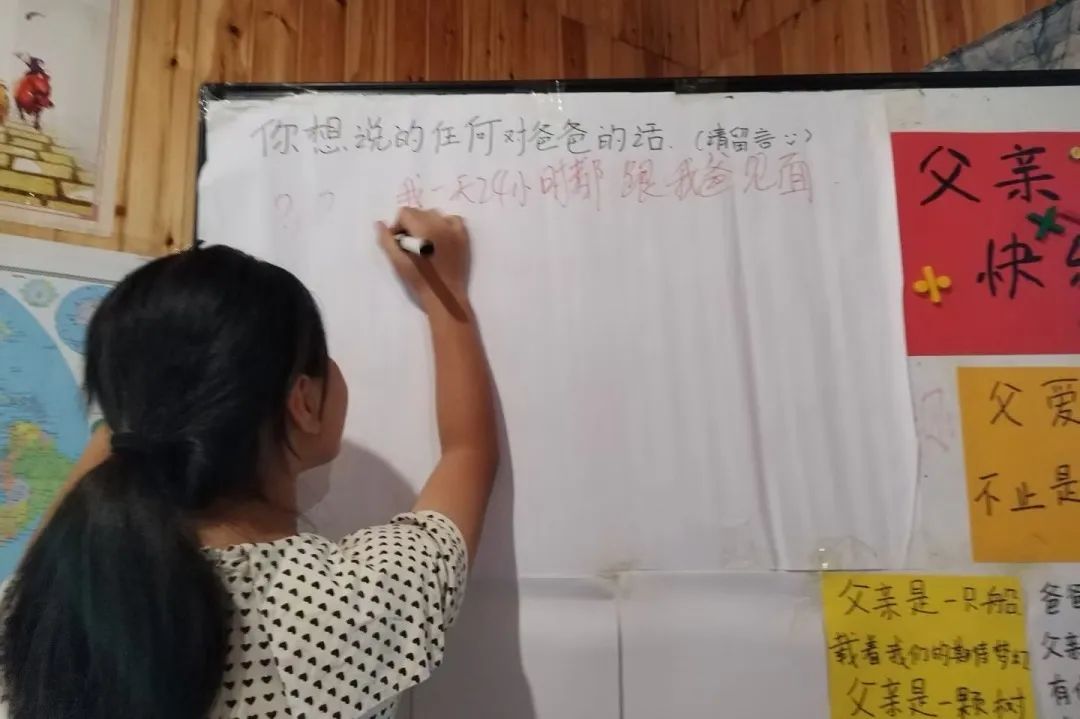 你想说的任何对爸爸的话.(请留言:)
? ? 我一天24小时都跟我爸见面.
父亲
快乐
父爱
不止是
父亲是一只船
载着我们的
父亲是一颗树
爸爸
父亲
有